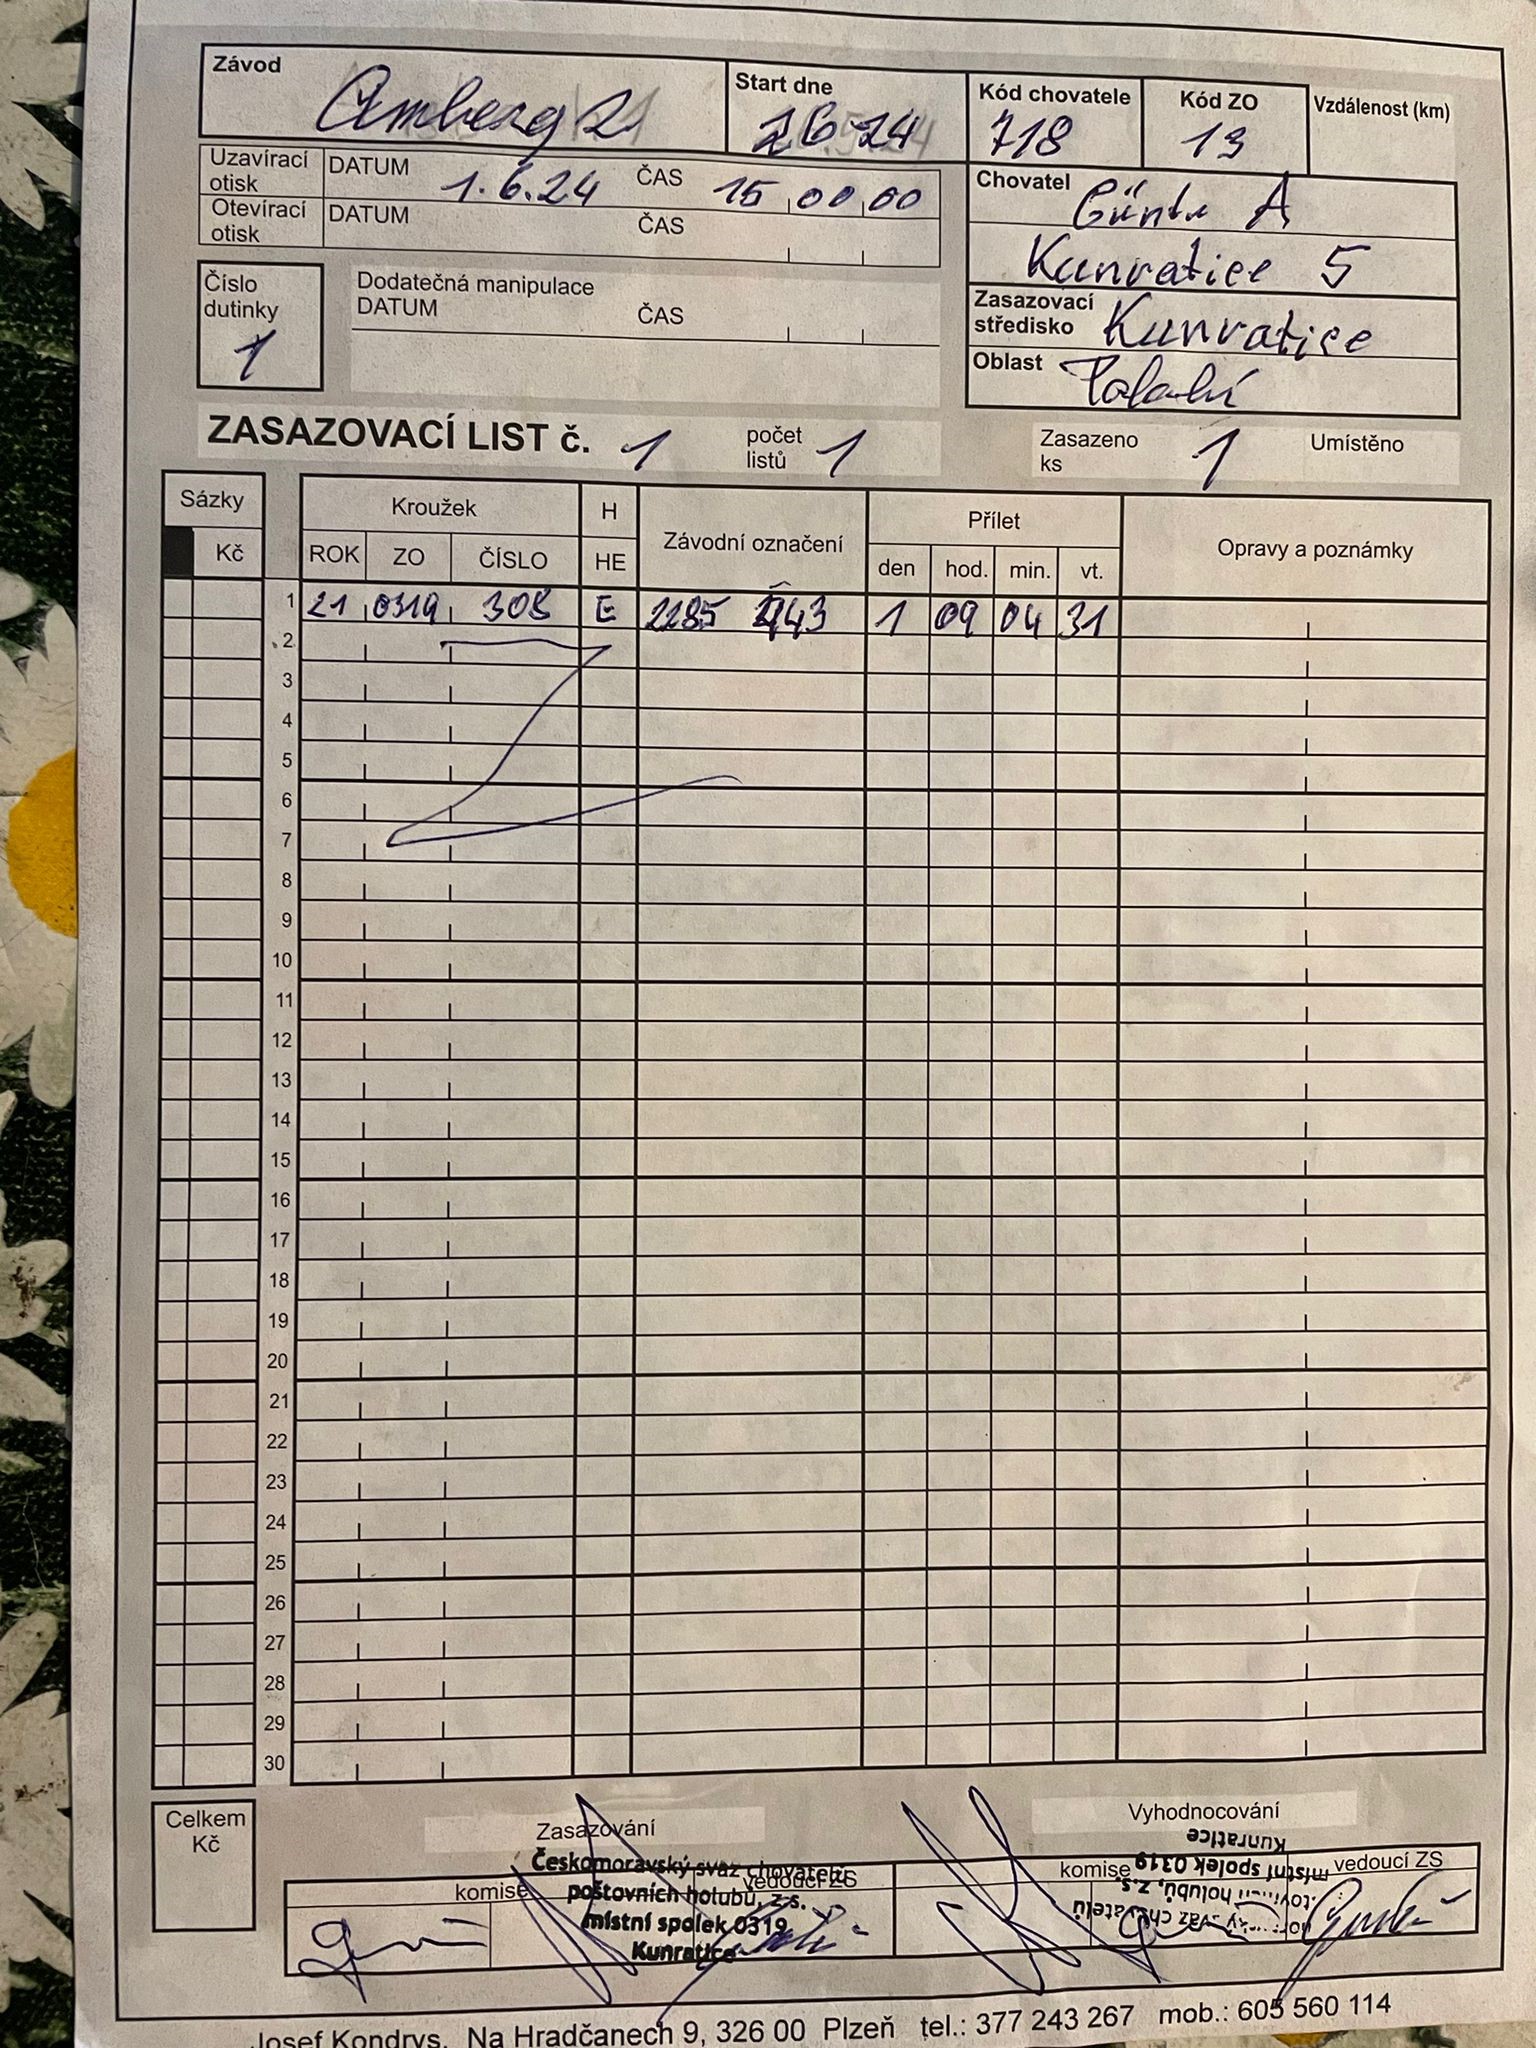 Závod Amberg 21 Start dne 2 6 24 Kód chovatele 718 Kód ZO 13 Vzdálenost (km)
Uzavírací otisk DATUM 1.6.24 ČAS 15 00 00
Otevírací otisk DATUM ČAS
Chovatel A
Kunratice 5
Číslo dutinky 1
Dodatečná manipulace
DATUM ČAS
Zasazovací středisko Kunratice
Oblast Polabí
ZASAZOVACÍ LIST č. 1 počet listů 1 Zasazeno ks 1 Umístěno
Sázky Kroužek H Závodní označení Přílet Opravy a poznámky
Kč ROK ZO ČÍSLO HE den hod. min. vt.
1 21 0319 308 E 2285 1 09 04 31
2
3
4
5
6
7
8
9
10
11
12
13
14
15
16
17
18
19
20
21
22
23
24
25
26
27
28
29
30
Celkem Kč
Zasazování
Vyhodnocování
komise vedoucí ZS komise vedoucí ZS
Českomoravský svaz chovatelů
poštovních holubů, z.s.
místní spolek 0319
Kunratice
svaz chovatelů
holubů, z.s.
místní spolek 0319
Kunratice
Josef Kondrys, Na Hradčanech 9, 326 00 Plzeň tel.: 377 243 267 mob.: 605 560 114